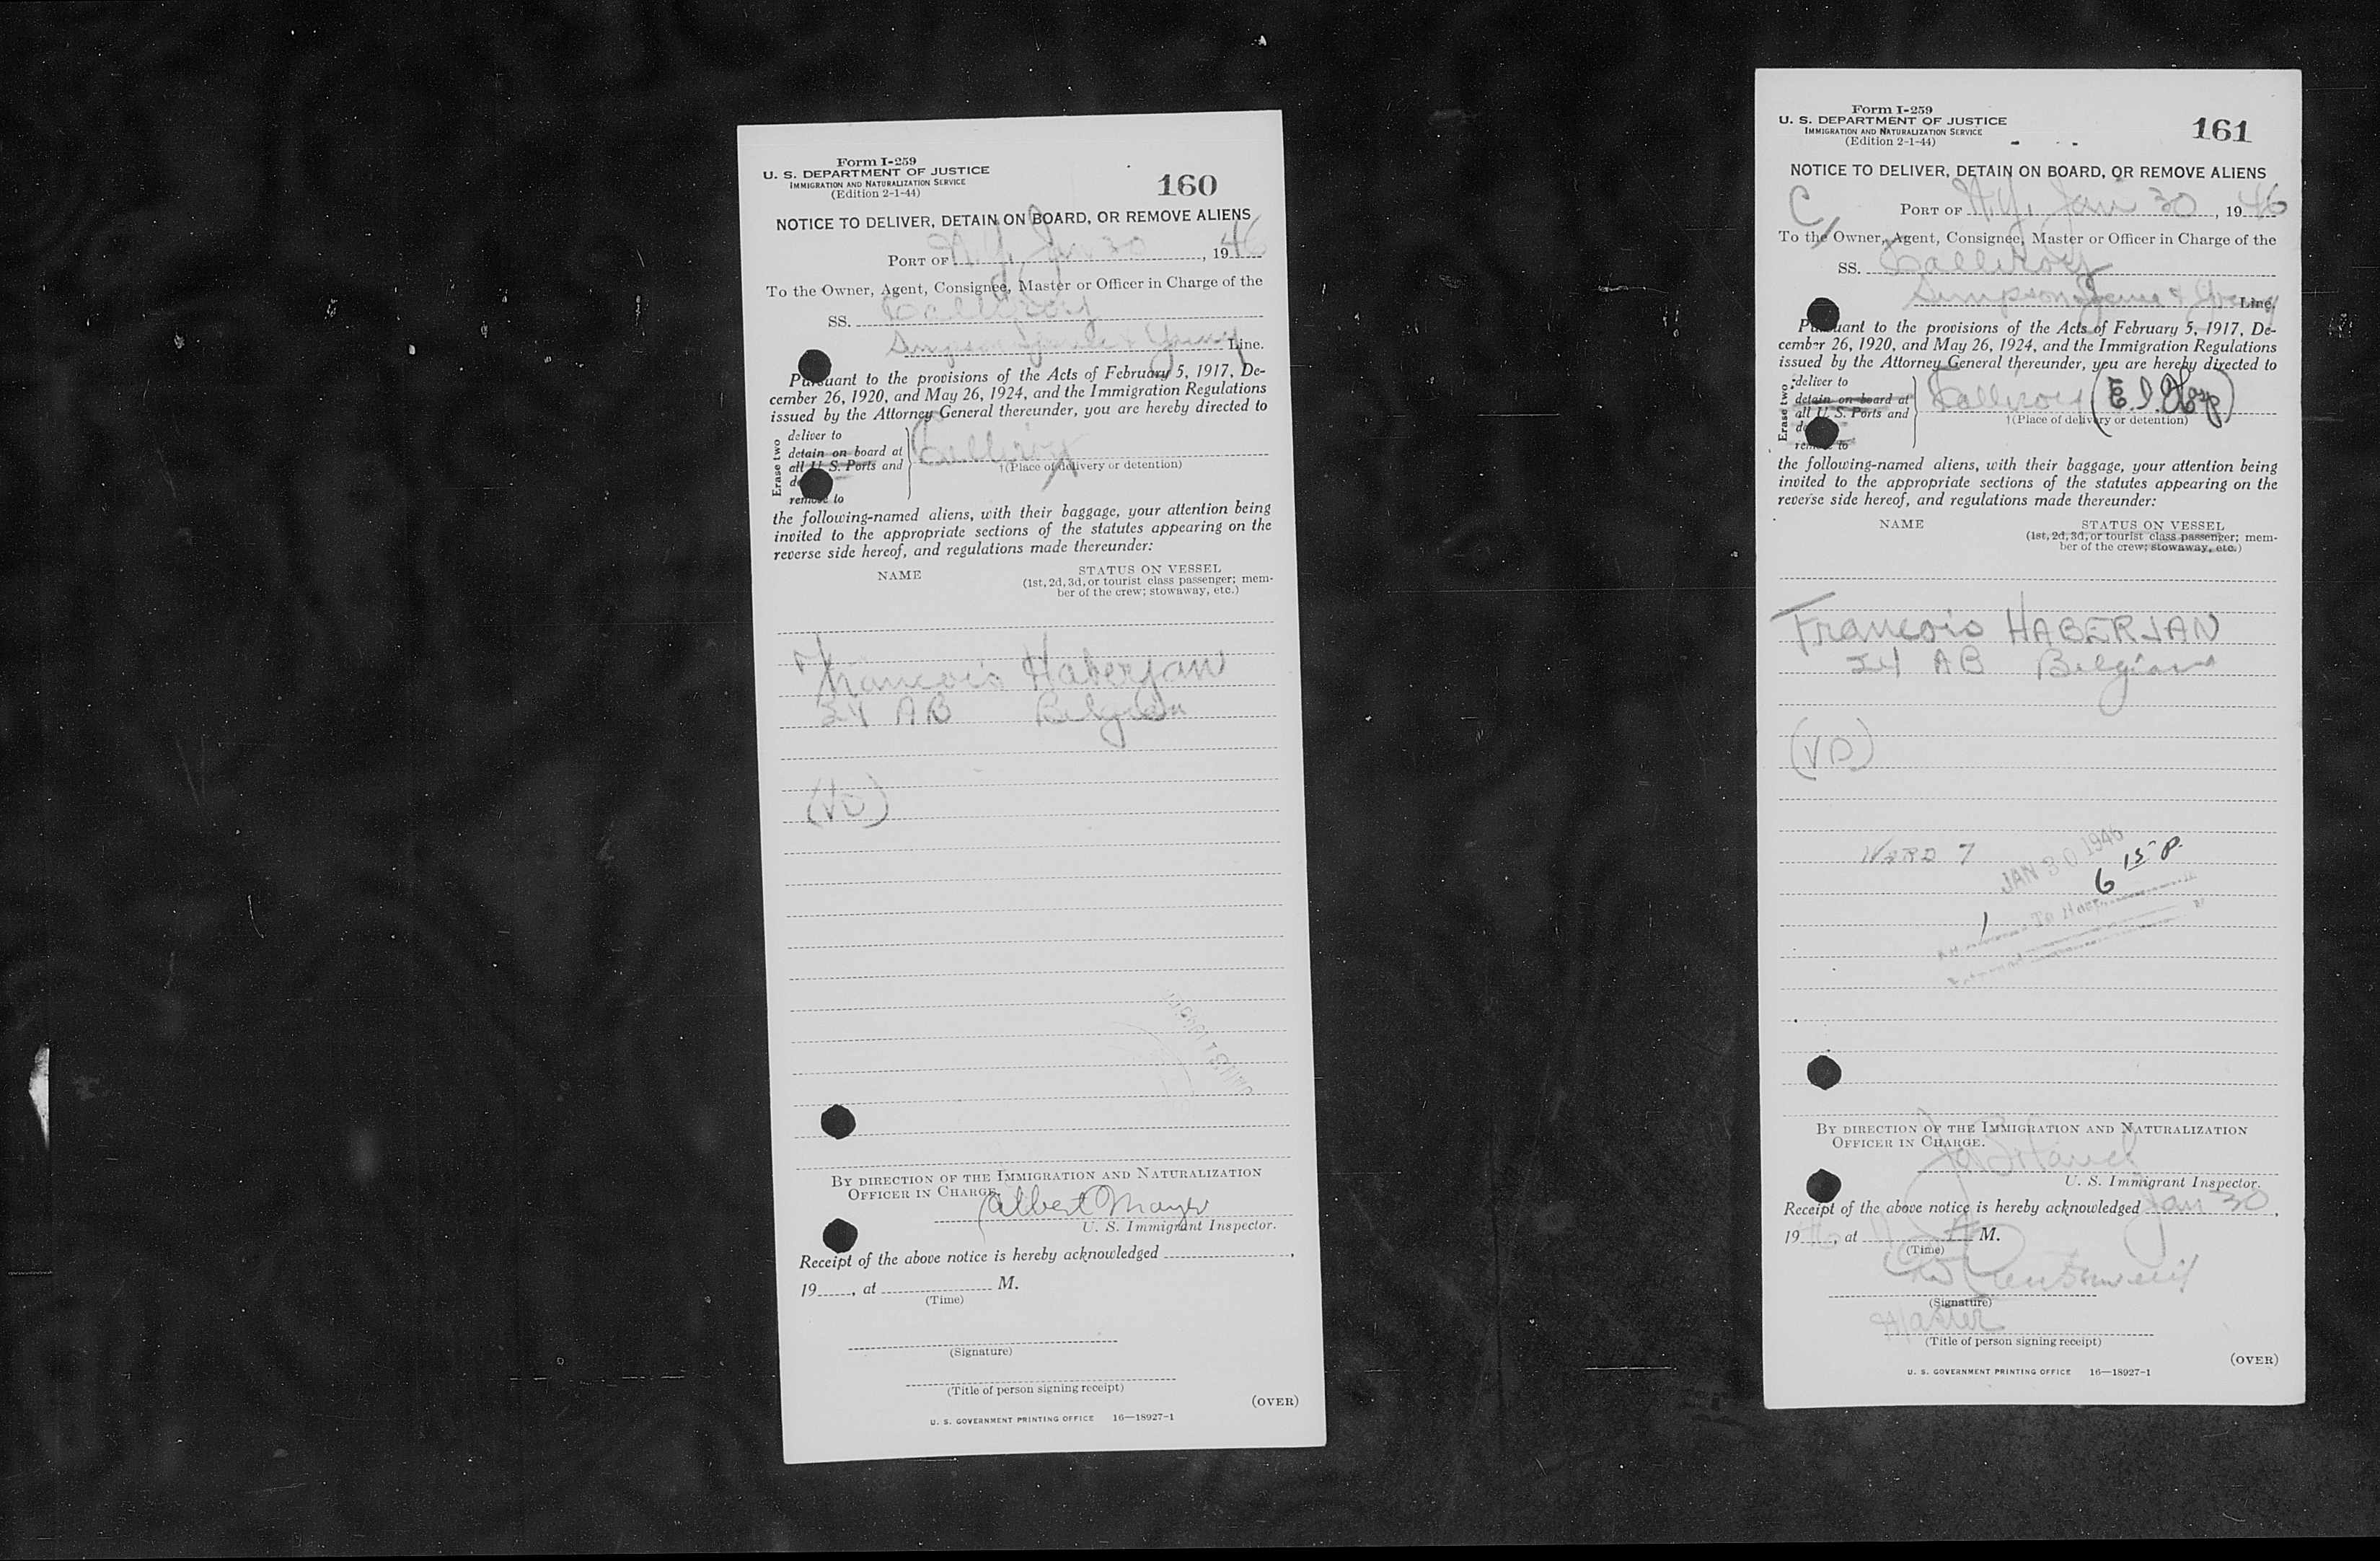 Form I-259
U. S. DEPARTMENT OF JUSTICE
IMMIGRATION AND NATURALIZATION SERVICE
(Edition 2-1-44)
160
NOTICE TO DELIVER, DETAIN ON BOARD, OR REMOVE ALIENS
PORT OF N.Y. Jan 30, 1946
To the Owner, Agent, Consignee, Master or Officer in Charge of the
SS. Calliroy
Simpson Spence & Young Line.
Pursuant to the provisions of the Acts of February 5, 1917, De-
cember 26, 1920, and May 26, 1924, and the Immigration Regulations
issued by the Attorney General thereunder, you are hereby directed to
Erase two
deliver to
detain on board at
all U. S. Ports and
remove to
Calliroy
†(Place of delivery or detention)
the following-named aliens, with their baggage, your attention being
invited to the appropriate sections of the statutes appearing on the
reverse side hereof, and regulations made thereunder:
NAME
STATUS ON VESSEL
(1st, 2d, 3d, or tourist class passenger; mem-
ber of the crew; stowaway, etc.)
Francois Haberjan
24 AB Belgian
(VD)
BY DIRECTION OF THE IMMIGRATION AND NATURALIZATION
OFFICER IN CHARGE.
Albert Mayer
U. S. Immigrant Inspector.
Receipt of the above notice is hereby acknowledged
19, at M.
(Time)
(Signature)
(Title of person signing receipt)
(OVER)
U. S. GOVERNMENT PRINTING OFFICE 16—18927-1
Form I-259
U. S. DEPARTMENT OF JUSTICE
IMMIGRATION AND NATURALIZATION SERVICE
(Edition 2-1-44)
161
NOTICE TO DELIVER, DETAIN ON BOARD, OR REMOVE ALIENS
C
PORT OF N.Y. Jan 30, 1946
To the Owner, Agent, Consignee, Master or Officer in Charge of the
SS. Calliroy
Simpson Spence & Young Line.
Pursuant to the provisions of the Acts of February 5, 1917, De-
cember 26, 1920, and May 26, 1924, and the Immigration Regulations
issued by the Attorney General thereunder, you are hereby directed to
Erase two
*deliver to
detain on board at
all U. S. Ports and
remove to
Calliroy (E.I. Hosp)
†(Place of delivery or detention)
the following-named aliens, with their baggage, your attention being
invited to the appropriate sections of the statutes appearing on the
reverse side hereof, and regulations made thereunder:
NAME
STATUS ON VESSEL
(1st, 2d, 3d, or tourist class passenger; mem-
ber of the crew; stowaway, etc.)
Francois HABERJAN
24 AB Belgian
(VD)
WARD 7
JAN 30 1946
6 15 P.
1 To Hosp.
BY DIRECTION OF THE IMMIGRATION AND NATURALIZATION
OFFICER IN CHARGE.
U. S. Immigrant Inspector.
Receipt of the above notice is hereby acknowledged Jan 30,
1946, at A M.
(Time)
(Signature)
Master
(Title of person signing receipt)
(OVER)
U. S. GOVERNMENT PRINTING OFFICE 16—18927-1